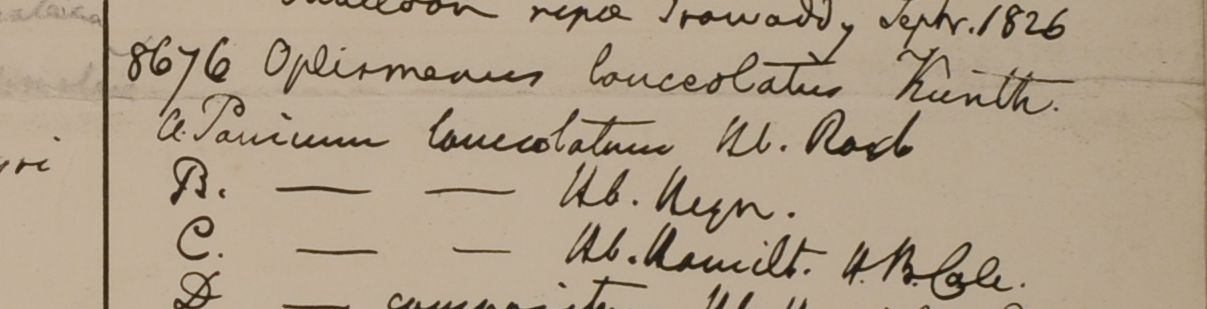 ripæ Irawaddy Septr. 1826
8676 Oplismenus lanceolatus Kunth.
a. Panicum lanceolatum Hb. Roxb
B. — — Hb. Heyn.
C. — — Hb. Hamilt. H.B. Calc.
D — composit Hb.